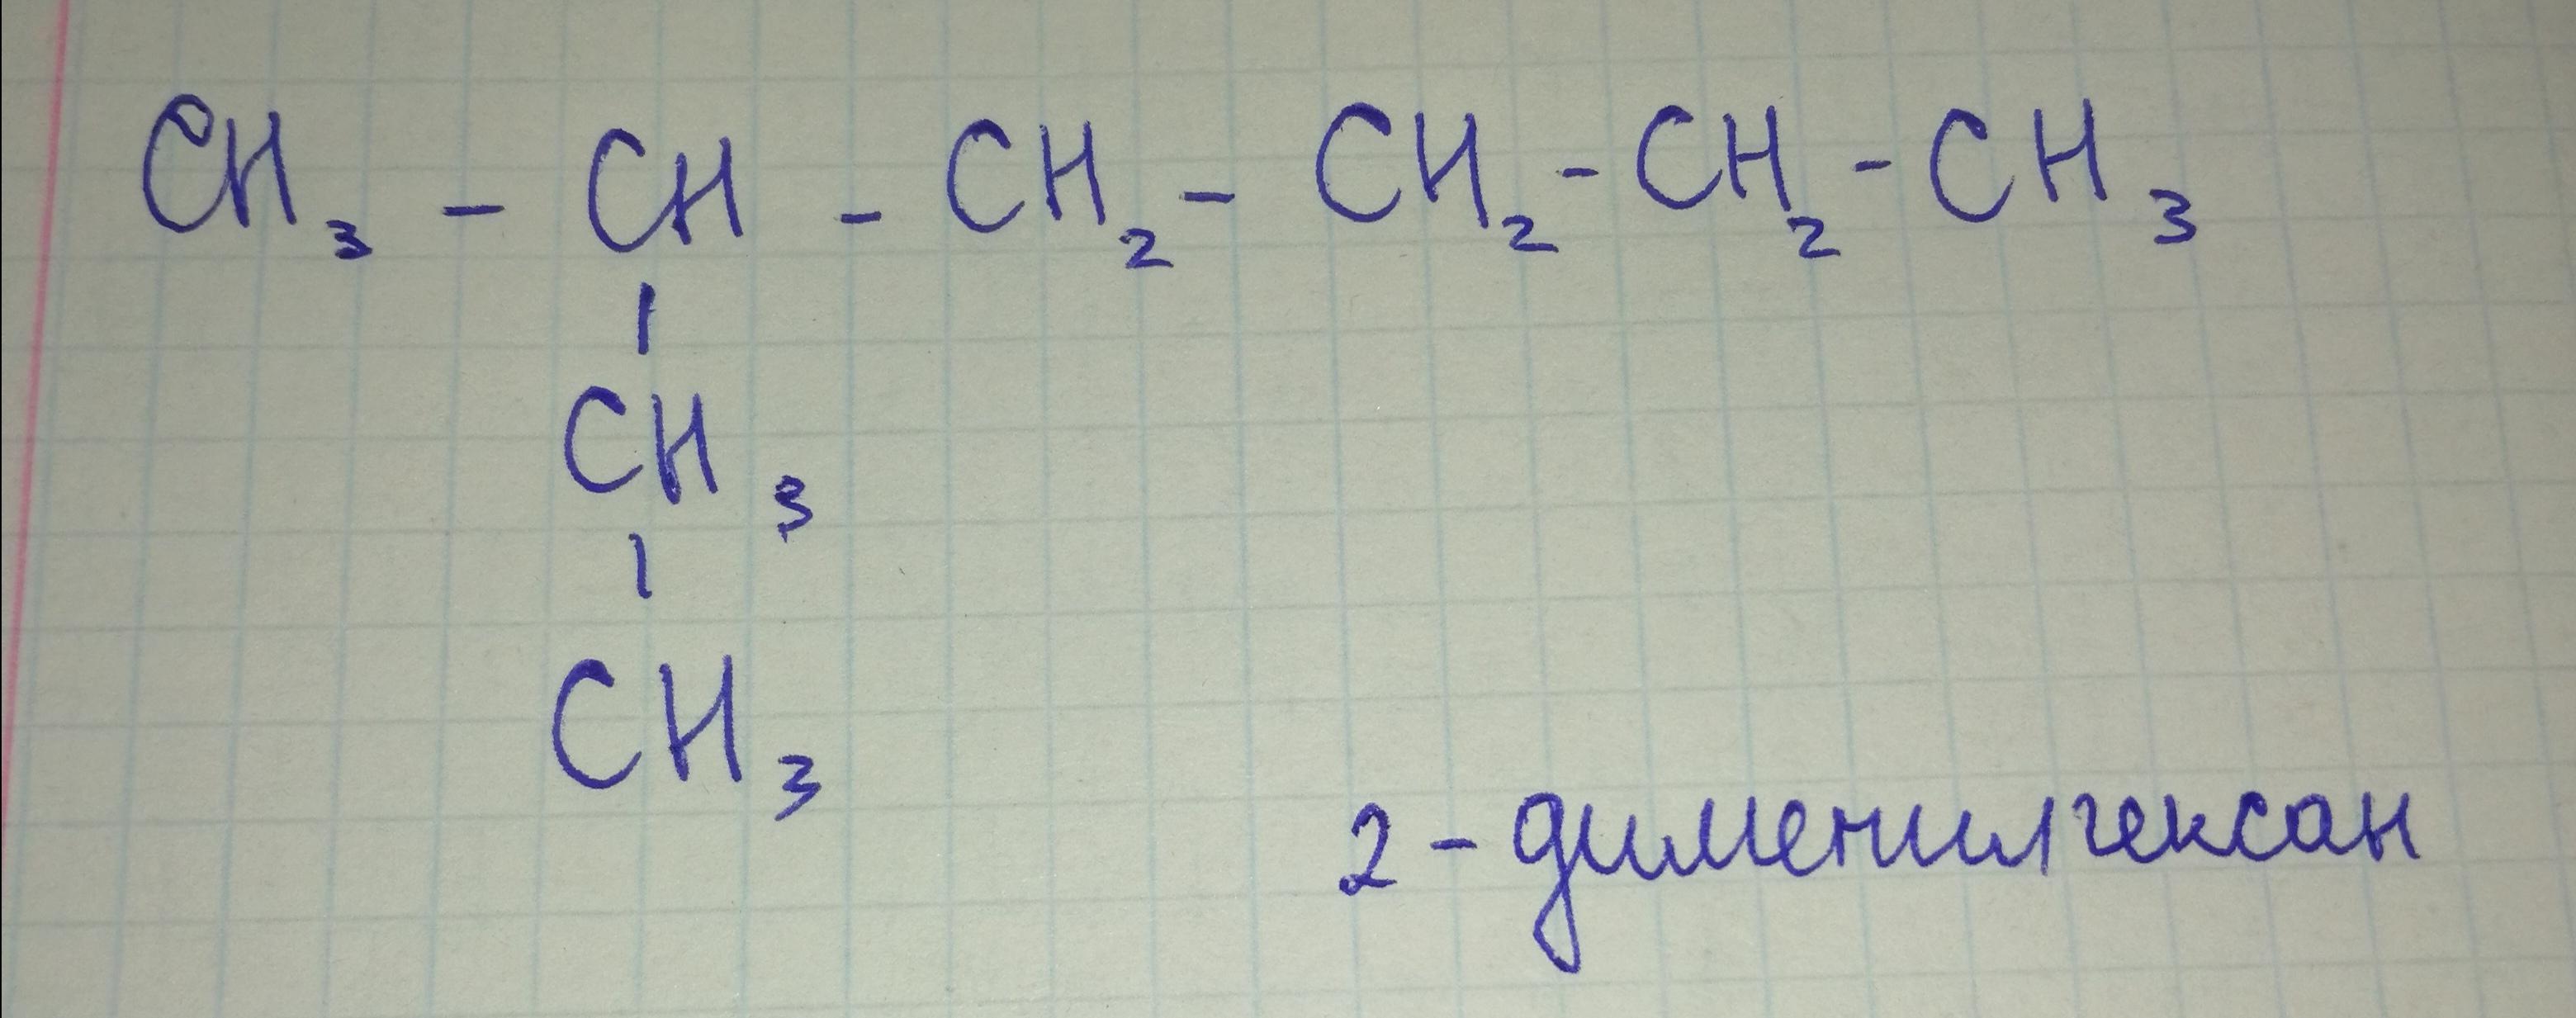 CH₃ - CH - CH₂ - CH₂ - CH₂ - CH₃
|
CH₃
|
CH₃
2 - диметилгексан